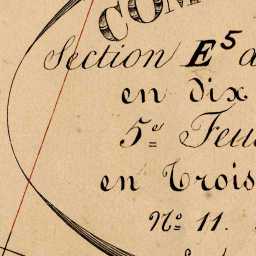 COM
Section E⁵ d
en dix
5.e Feu
en Trois
No 11.